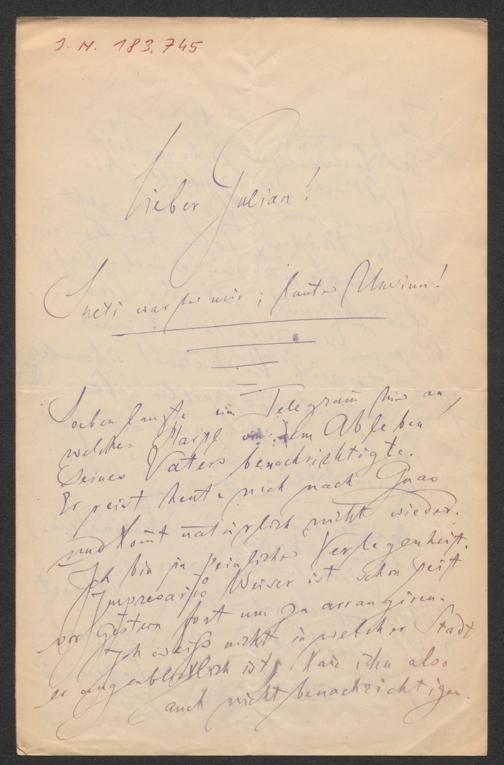 J. N. 183.745
Lieber Julian!
war lauter Unsinn!
Soeben langte ein Telegram hier an,
welches Harpf von dem Ableben
seines Vaters benachrichtigte.
Er reist heute noch nach Graz
und kommt natürlich nicht wieder.
Ich bin in peinlicher Verlegenheit.
Impresario Weiser ist schon seit
vorgestern fort um zu arrangiren.
Ich weiß nicht in welcher Stadt
er augenblicklich ist, kan ihn also
auch nicht benachrichtigen.